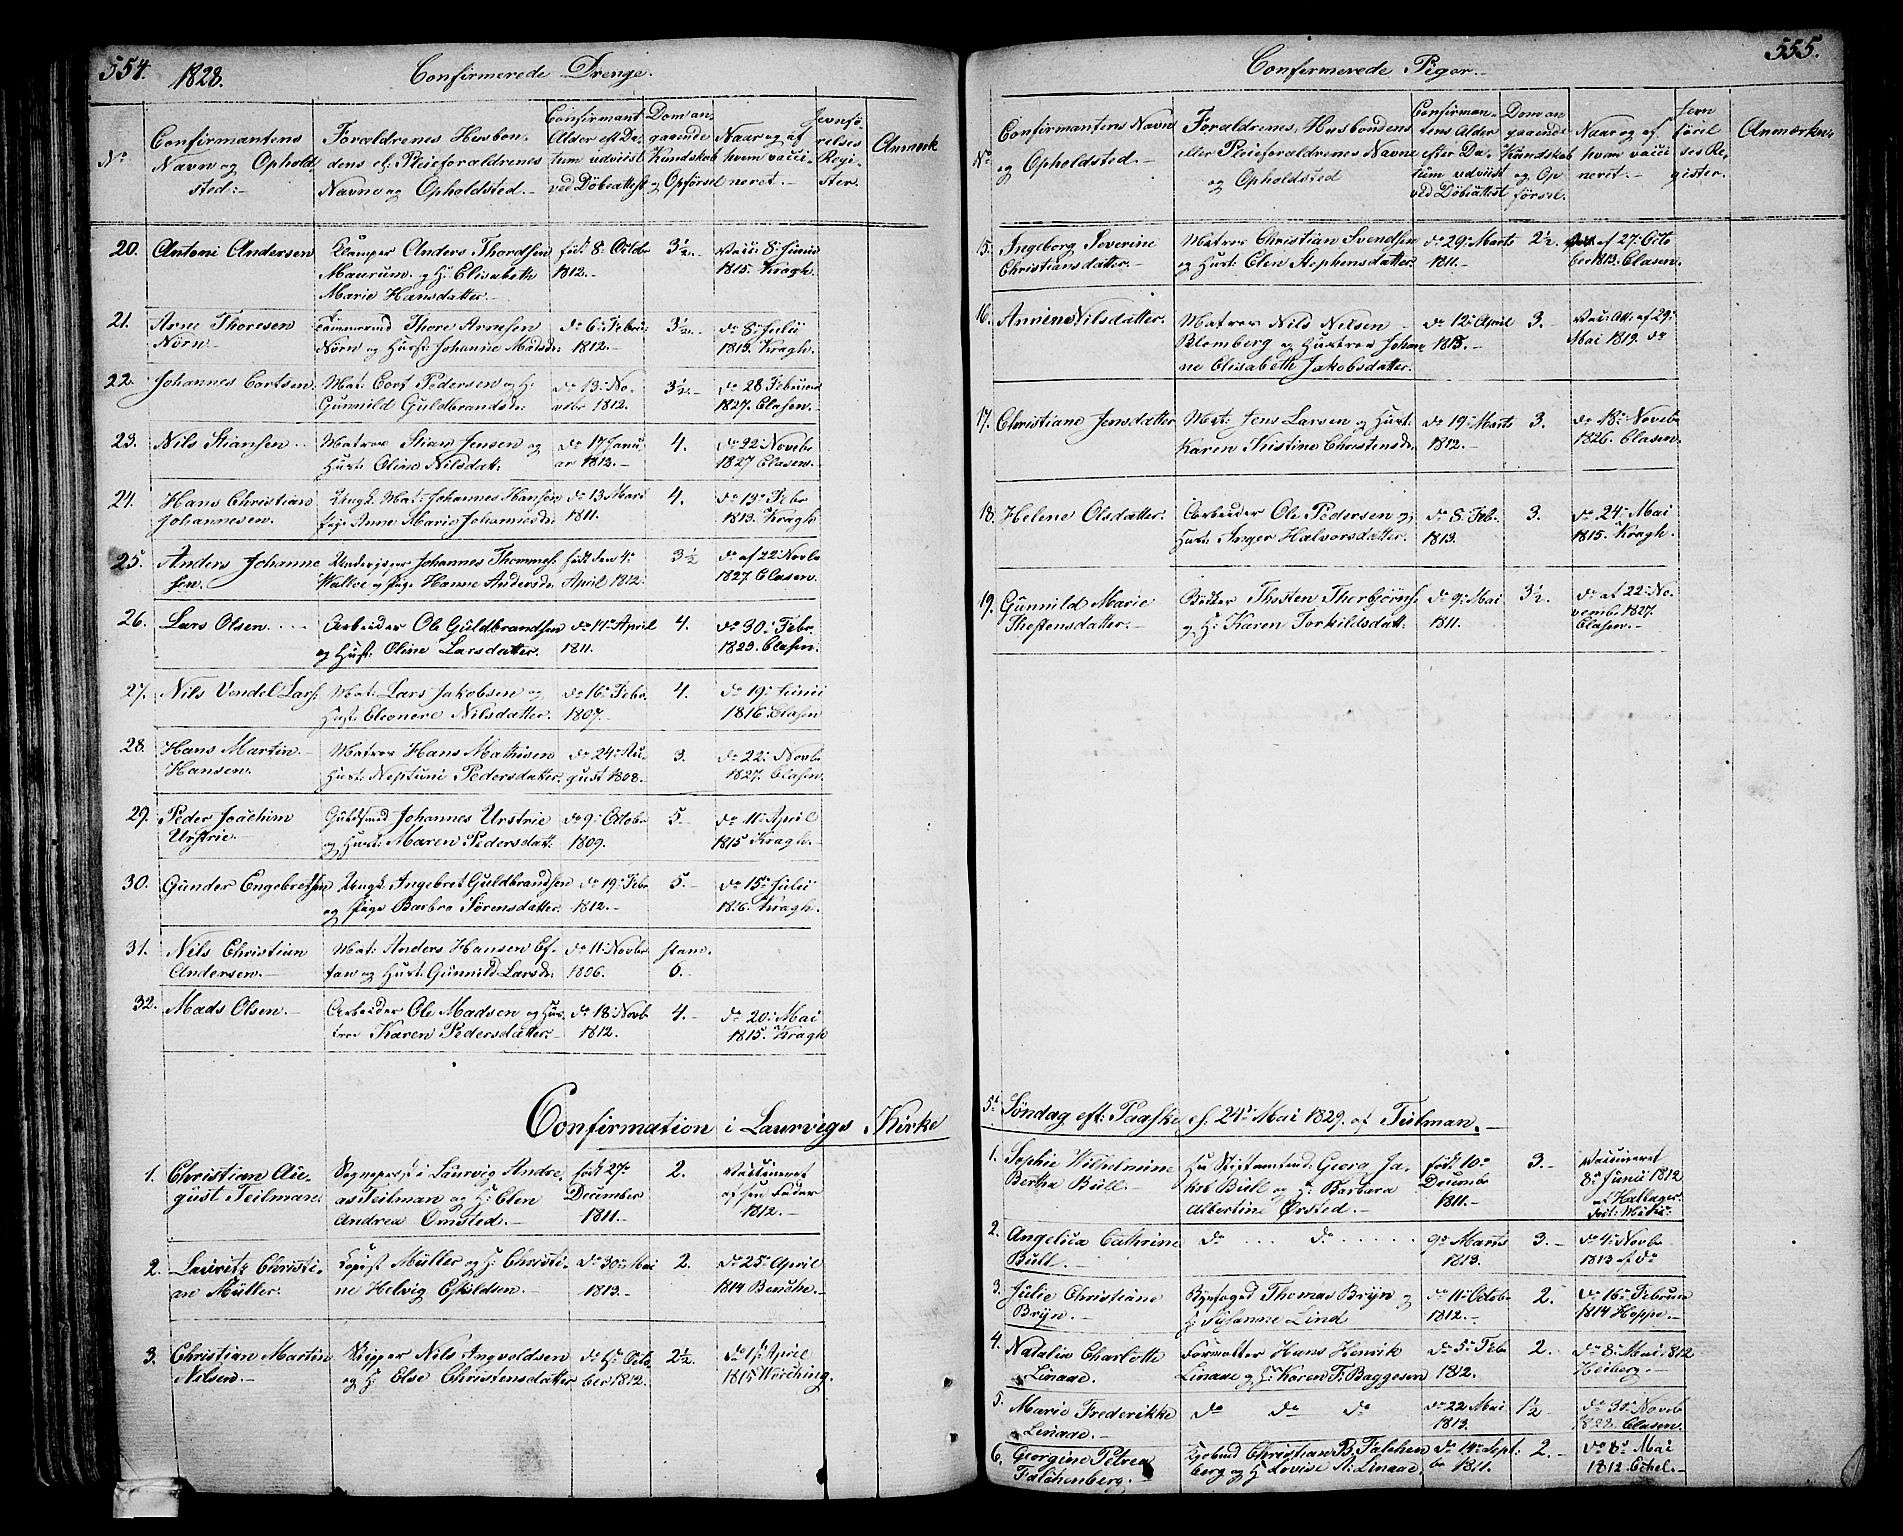 554.
1828.
Confirmerede Drenge.
No
Confirmantens
Navn og Opholds
sted:-
Foraldrenes Husbon-
dens ell. Pleieforaldrenes
Navne og Opholdsted.-
Confirmant
Alder eft Da-
tum udviist
ved Döbeattest
Dom an-
gaaende
Kundskab
og Opförsel
Naar og af
hvem vacci-
neret.-
Jevnfö-
relses
Regi-
ster.
Anmerk
20. Antoni Andersen
Klamper Anders Thordsen
Maurum. og H: Elisabeth
Marie Hansdatter.-
föd: 8: Octbr
1812.
3½.-
Vacc: 8: Junii
1815. Kragh.
21. Arne Thoresen
Nörn-
Tömmermd Thore Arnesen
Nörn og Hust: Johanne Madsd:
do 6: Febr:
1812.-
3½.-
do 8: Julii
1813. Kragh.
22. Johannes Cortsen
Mat: Cort Pedersen og H:
Gunnild Guldbrandsd:
do 13: No-
vdbr 1812.
3½.-
do 28 Februar
1827. Clasen.-
23. Nils Stiansen..
Matros Stian Jensen og
Hust: Oline Nilsdat:
do 17 Janu-
ar 1812.-
4.
do 22 Novebr
1827 Clasen.
24. Hans Christian
Johannesen.
Ungk. Mat: Johannes Hansen
Pige Anne Marie Johannesd:
do 13 Mars
1811.
4.
do 13: Febr
1813. Kragh
25. Anders Johanne
sen.
Underviser Johannes Thommes:
Valloe og Pige Hanne Andersd:
född den 4:
April 1812:
3½
do af 22 Novbr
1827 Clasen.
26. Lars Olsen....
Arbeider Ole Guldbrandsen
og Hust: Oline Larsdatter.
do 17: April
1811.
4.
do 30: Febr.
1823. Clasen.
27. Nils Vendel Lars:
Mat: Lars Jakobsen og
Hust: Eleonore Nilsdatter.
do 16: Febr.
1807.-
4.
do 19: Junii
1816. Clasen
28. Hans Martin
Hansen.
Matros Hans Mathisen
Hust: Neptuni Pedersdatter.
do 24: Au-
gust 1808.
3.
do 22: Novbr
1827. Clasen.
29. Peder Joachim
Urstrie.-
Guldsmed Johannes Urstrie
og Hust: Maren Pedersdatt:
do 9: Octobr
1809.
5.-
do 11: April
1815 Kragh.
30. Gunder Engebretsen
Ungk. Ingebret Guldbrandsen
og Pige Barbro Sörensdatter:
do 19: Febr
1812.-
5.-
do 15: Julii
1816. Kragh.
31. Nils Christian
Andersen.-
Mat: Anders Hansen Ef-
tan og Hust: Gunnild Larsd:
do 11: Novbr
1806.
stam.
6.-
32. Mads Olsen.-
Arbeider Ole Madsen og Hus-
troe Karen Pedersdatter:
do 18: Novb
1812.
4.-
do 20: Mai
1815. Kragh
Confirmation i Laurvigs Kirke
1. Christian Au-
gust Teilman
Sognepræst i Laurvig Andre
as Teilman og H: Elen
Andrea Omsted.-
född 27:
December
1811.-
2.
Vaccineret
af sin Fader
1812.-
2. Lauritz Christi-
an Müller.
Kopist Müller og H: Christi-
ne Helvig Eskildsen.-
do 30: Mai
1813.-
2.
do 25: April
1814 Bencke.
3. Christian Martin
Nilsen.-
Skipper Nils Ingvoldsen
og H: Else Christensdatter
do 4: Octo
ber 1812.
2½.-
do 1: April
1815 Wörching.
555.
Confirmerede Piger.-
No
Confirmantens Navn
og Opholdsted.-
Foraldrenes, Husbondens
eller Pleieforaldrenes Navne
og Opholdsted
Confirman-
tens Alder
efter Da-
tum udviist
ved Döbeattest
Dom an
gaaende
Kundskab
og Op
försel.
Naar og af
hvem vacci
neret.-
Jevn
förel
ses Re-
gister.
Anmærkn:
15. Ingeborg Severine
Christiansdatter.-
Matros Christian Svendsen
og Hust: Elen Stephensdatter.
do 29: Marts
1811.-
2½.
af 27: Octo
ber 1813. Clasen.
16. Annene Nilsdatter.
Matros Nils Nilsen -
Blomberg og Hustroe Johan
ne Elisabeth Jakobsdatter.
do 12: April
1813.
3.-
Vac: Att. af 29:
Mai 1819. do
17. Christiane Jensdatter
Mat: Jens Larsen og Hust:
Karen Kistine Christensd:
do 19: Marts
1812.
3.
do 18: Noveb
1826. Clasen.
18. Helene Olsdatter.
Arbeider Ole Pedersen og
Hust: Anger Halvorsdatter.
do 8: Feb.
1813.
3.
do 24: Mai
1815. Kragh.
19. Gunnild Marie
Thostensdatter.-
Bödker Thosten Thorbjörns:
og H: Karen Torkildsdatt:
do 9: Mai
1811.
3½.
do af 22: No-
vembr 1827.
Clasen.-
5te Söndag eft: Paaske, d: 24: Mai 1829. af Teilman.-
1. Sophie Wilhelmine
Bertha Bull.-
Hr Stiftamtmd: Georg Ja-
kob Bull og H: Barbara
Albertine Örsted.-
föd: 10:
Decembr
1811.-
3.-
Vaccineret
8: Junii 1812
af Halbager
2. Angelica Cathrine
Bull.-
do .... do .....
9: Marts
1813.
3.-
do 4: Novbr
1813 af do
3. Julie Christiane
Bryn.-
Byefoged Thomas Bryn og
H: Susanne Lind
do 11: Octobr
1812.-
2.
do 16: Februar
1814 Hoppe.
4. Natalia Charlotte
Linaae.
Formatter Hans Henrik
Linaae og H: Karen F. Baggesen
do 5: Febr
1812.
2.
do 8: Mai 1812
Heiberg.-
5. Marie Frederikke
Linaae.-
do do do
do 22 Mai
1813.
1½
do 30: Noveb
1822 Clasen.
6. Georgine Petrea
Falchenberg.-
Kjöbmd Christian B. Falchen
berg og H: Lovise A: Linaae.
do 14: Sept:
br 1811.
2.-
do 8: Mai
1812. Eckel.-